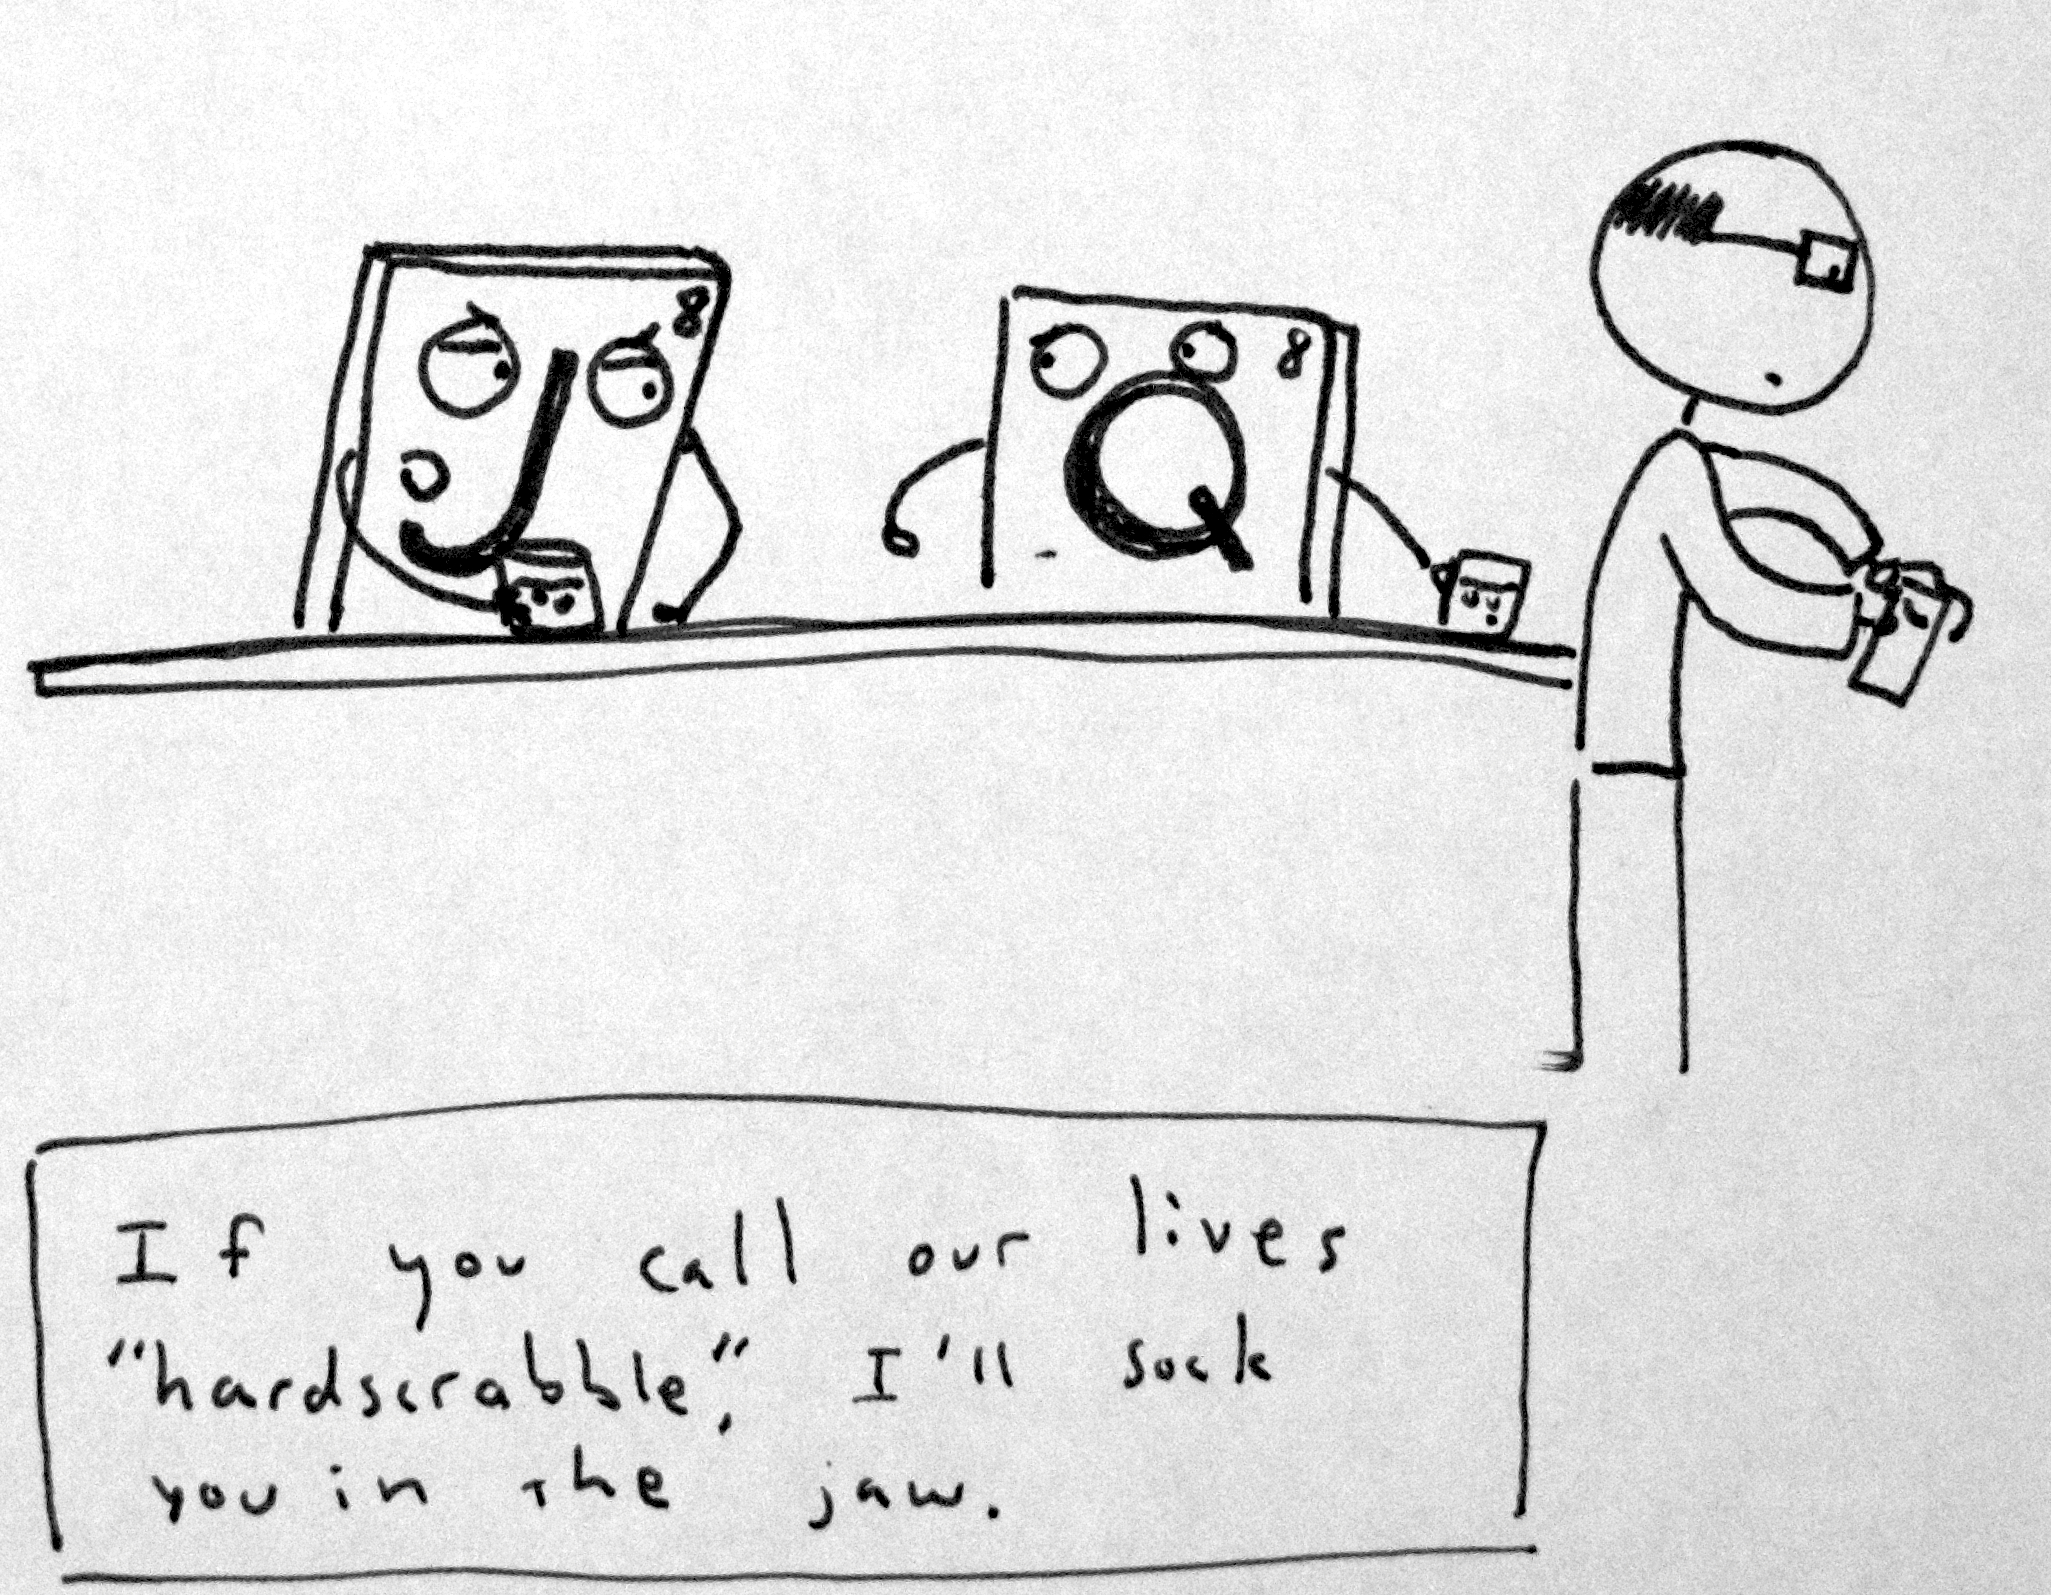 J 8
Q 8
If you call our lives
"hardscrabble," I'll sock
you in the jaw.